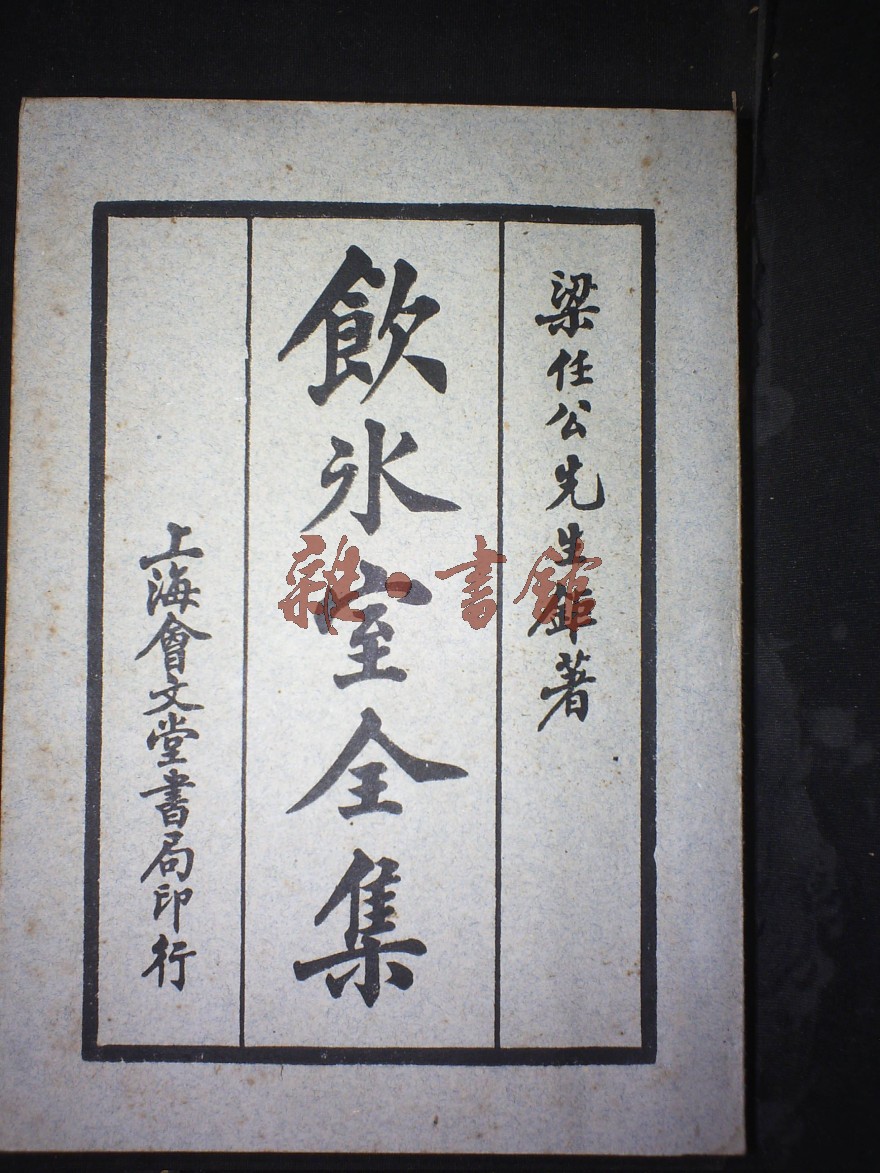 梁任公先生譔著
飲氷室全集
上海會文堂書局印行
雜·書館